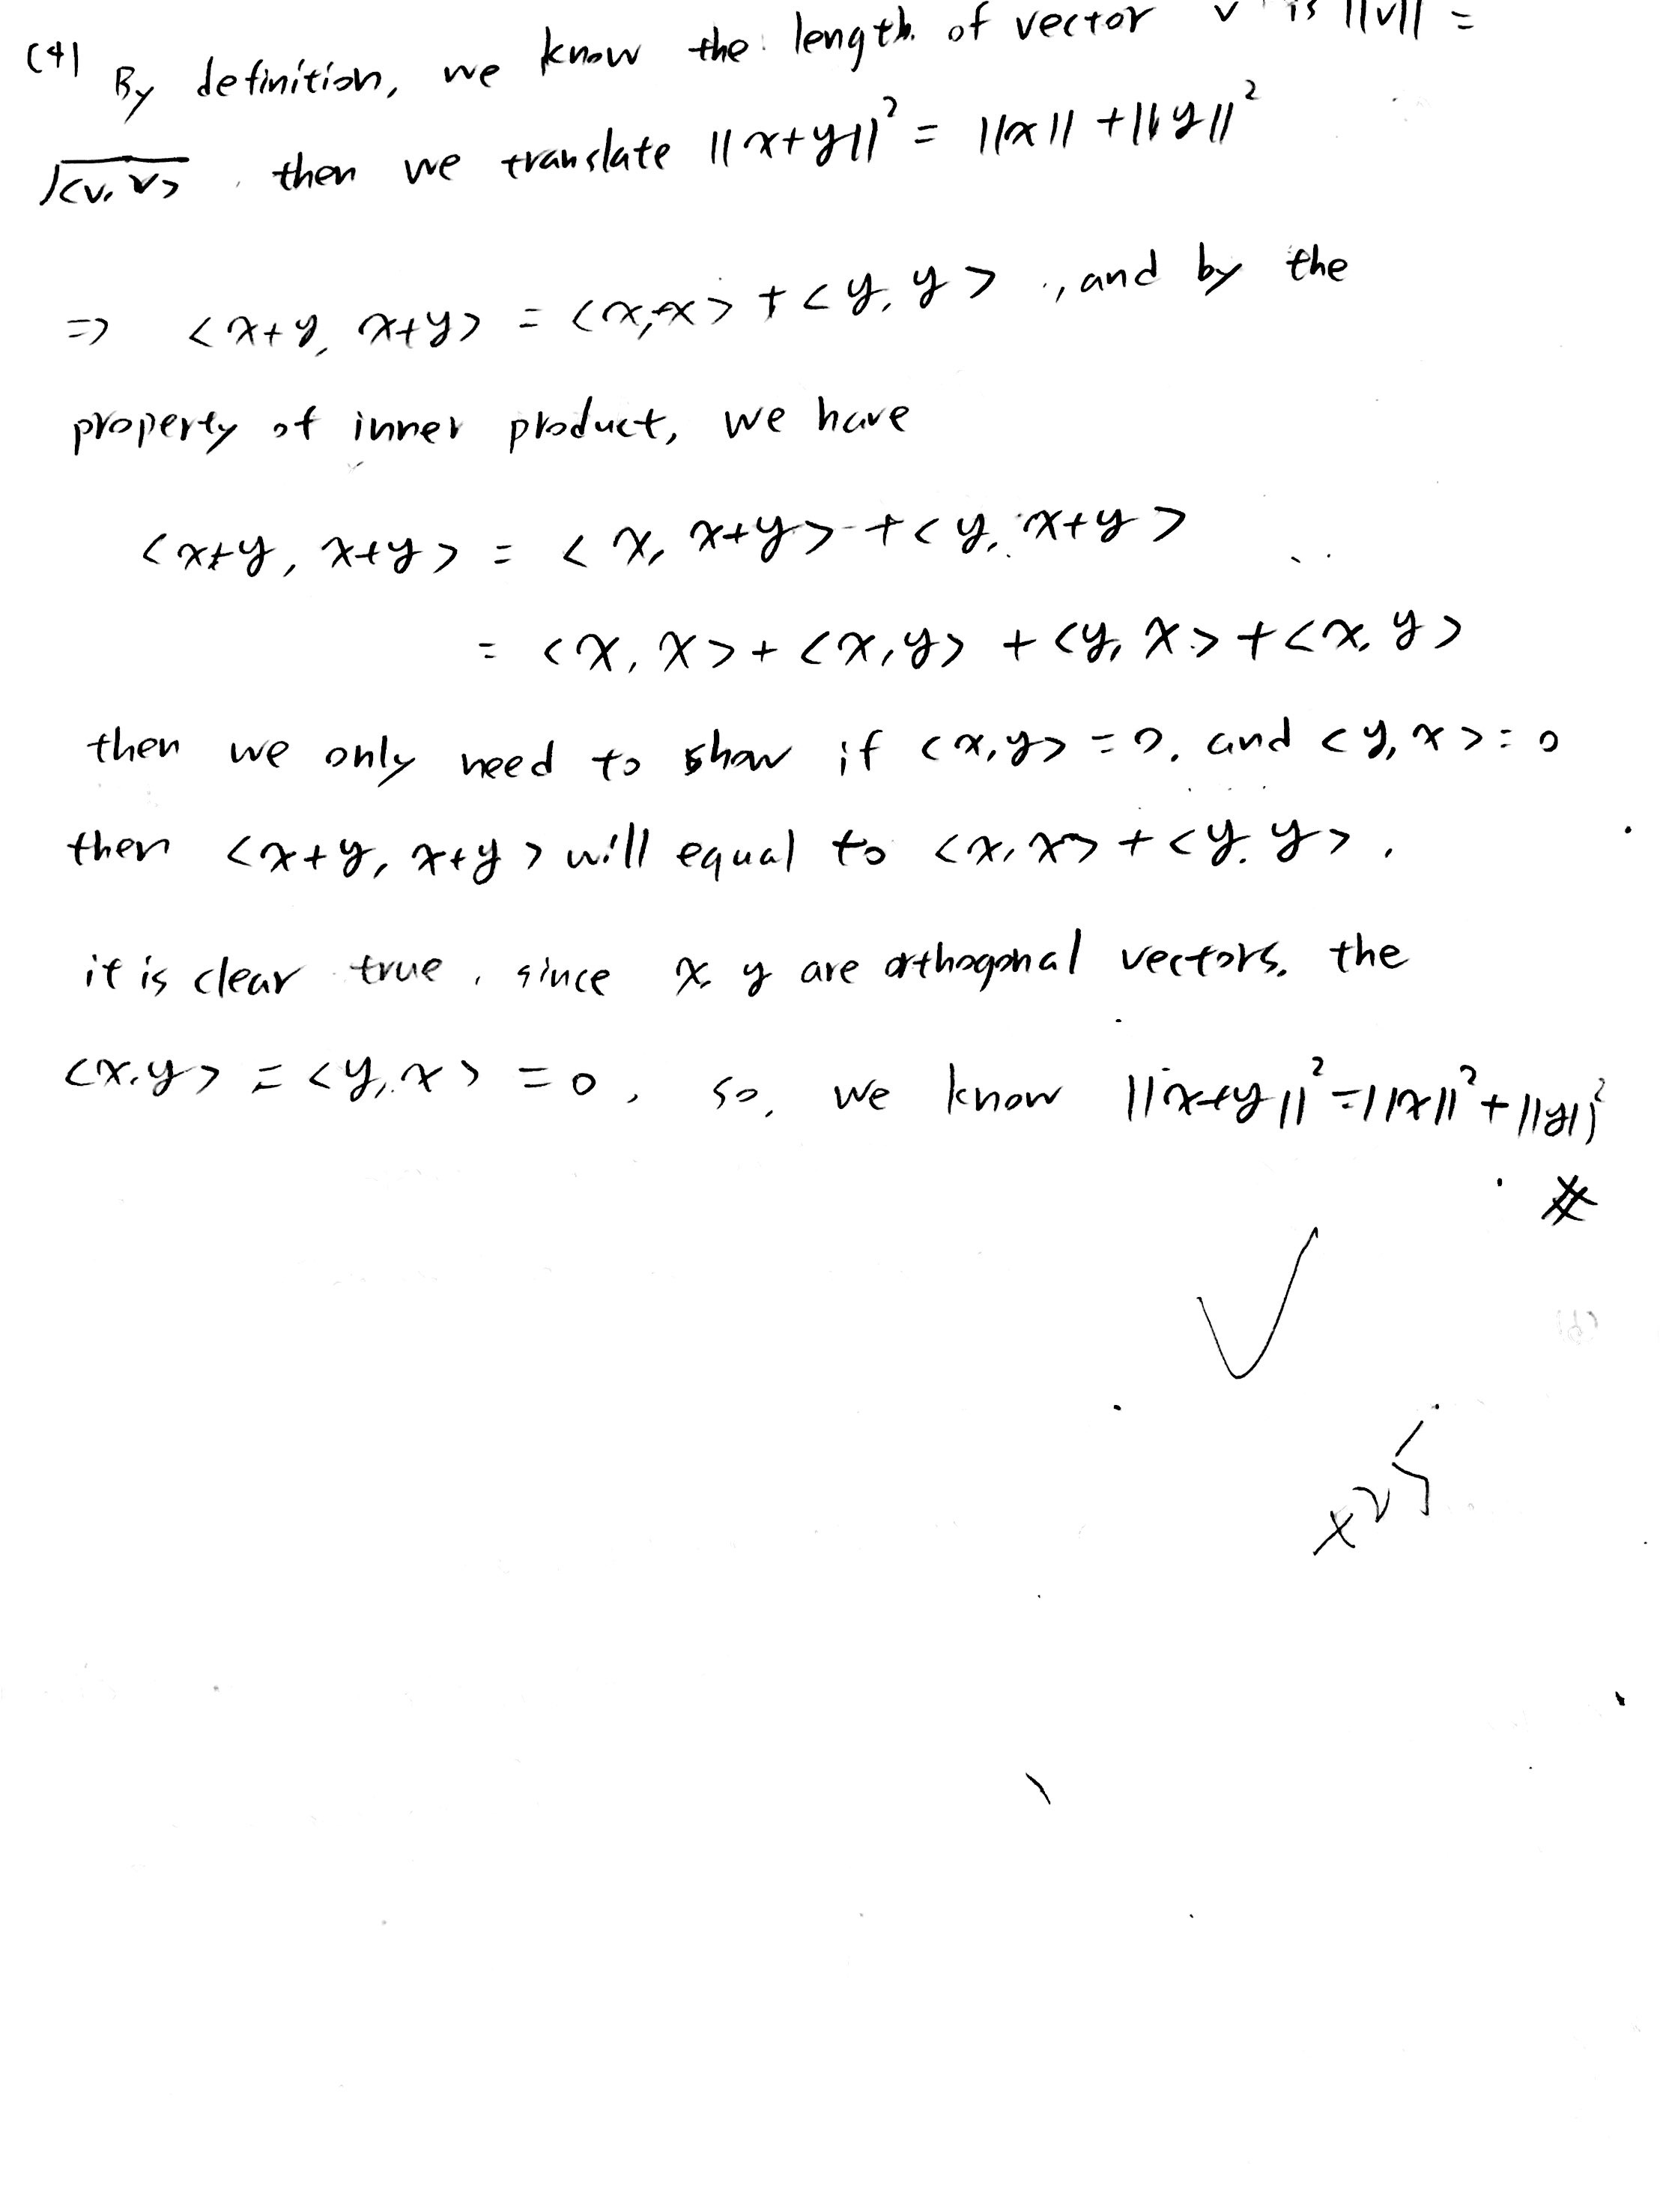 (4) By definition, we know the length of vector v is ||v|| =
√<v, v> , then we translate ||x+y||² = ||x|| + ||y||²
=> <x+y, x+y> = <x,x> + <y, y> , and by the
property of inner product, we have
<x+y, x+y> = < x, x+y> + <y, x+y>
= <x, x> + <x, y> + <y, x> + <x, y>
then we only need to show if <x,y> = 0, and <y, x> = 0
then <x+y, x+y> will equal to <x, x> + <y, y> ,
it is clear true , since x, y are orthogonal vectors, the
<x, y> = <y, x> = 0 , so, we know ||x+y||² = ||x||² + ||y||²
#